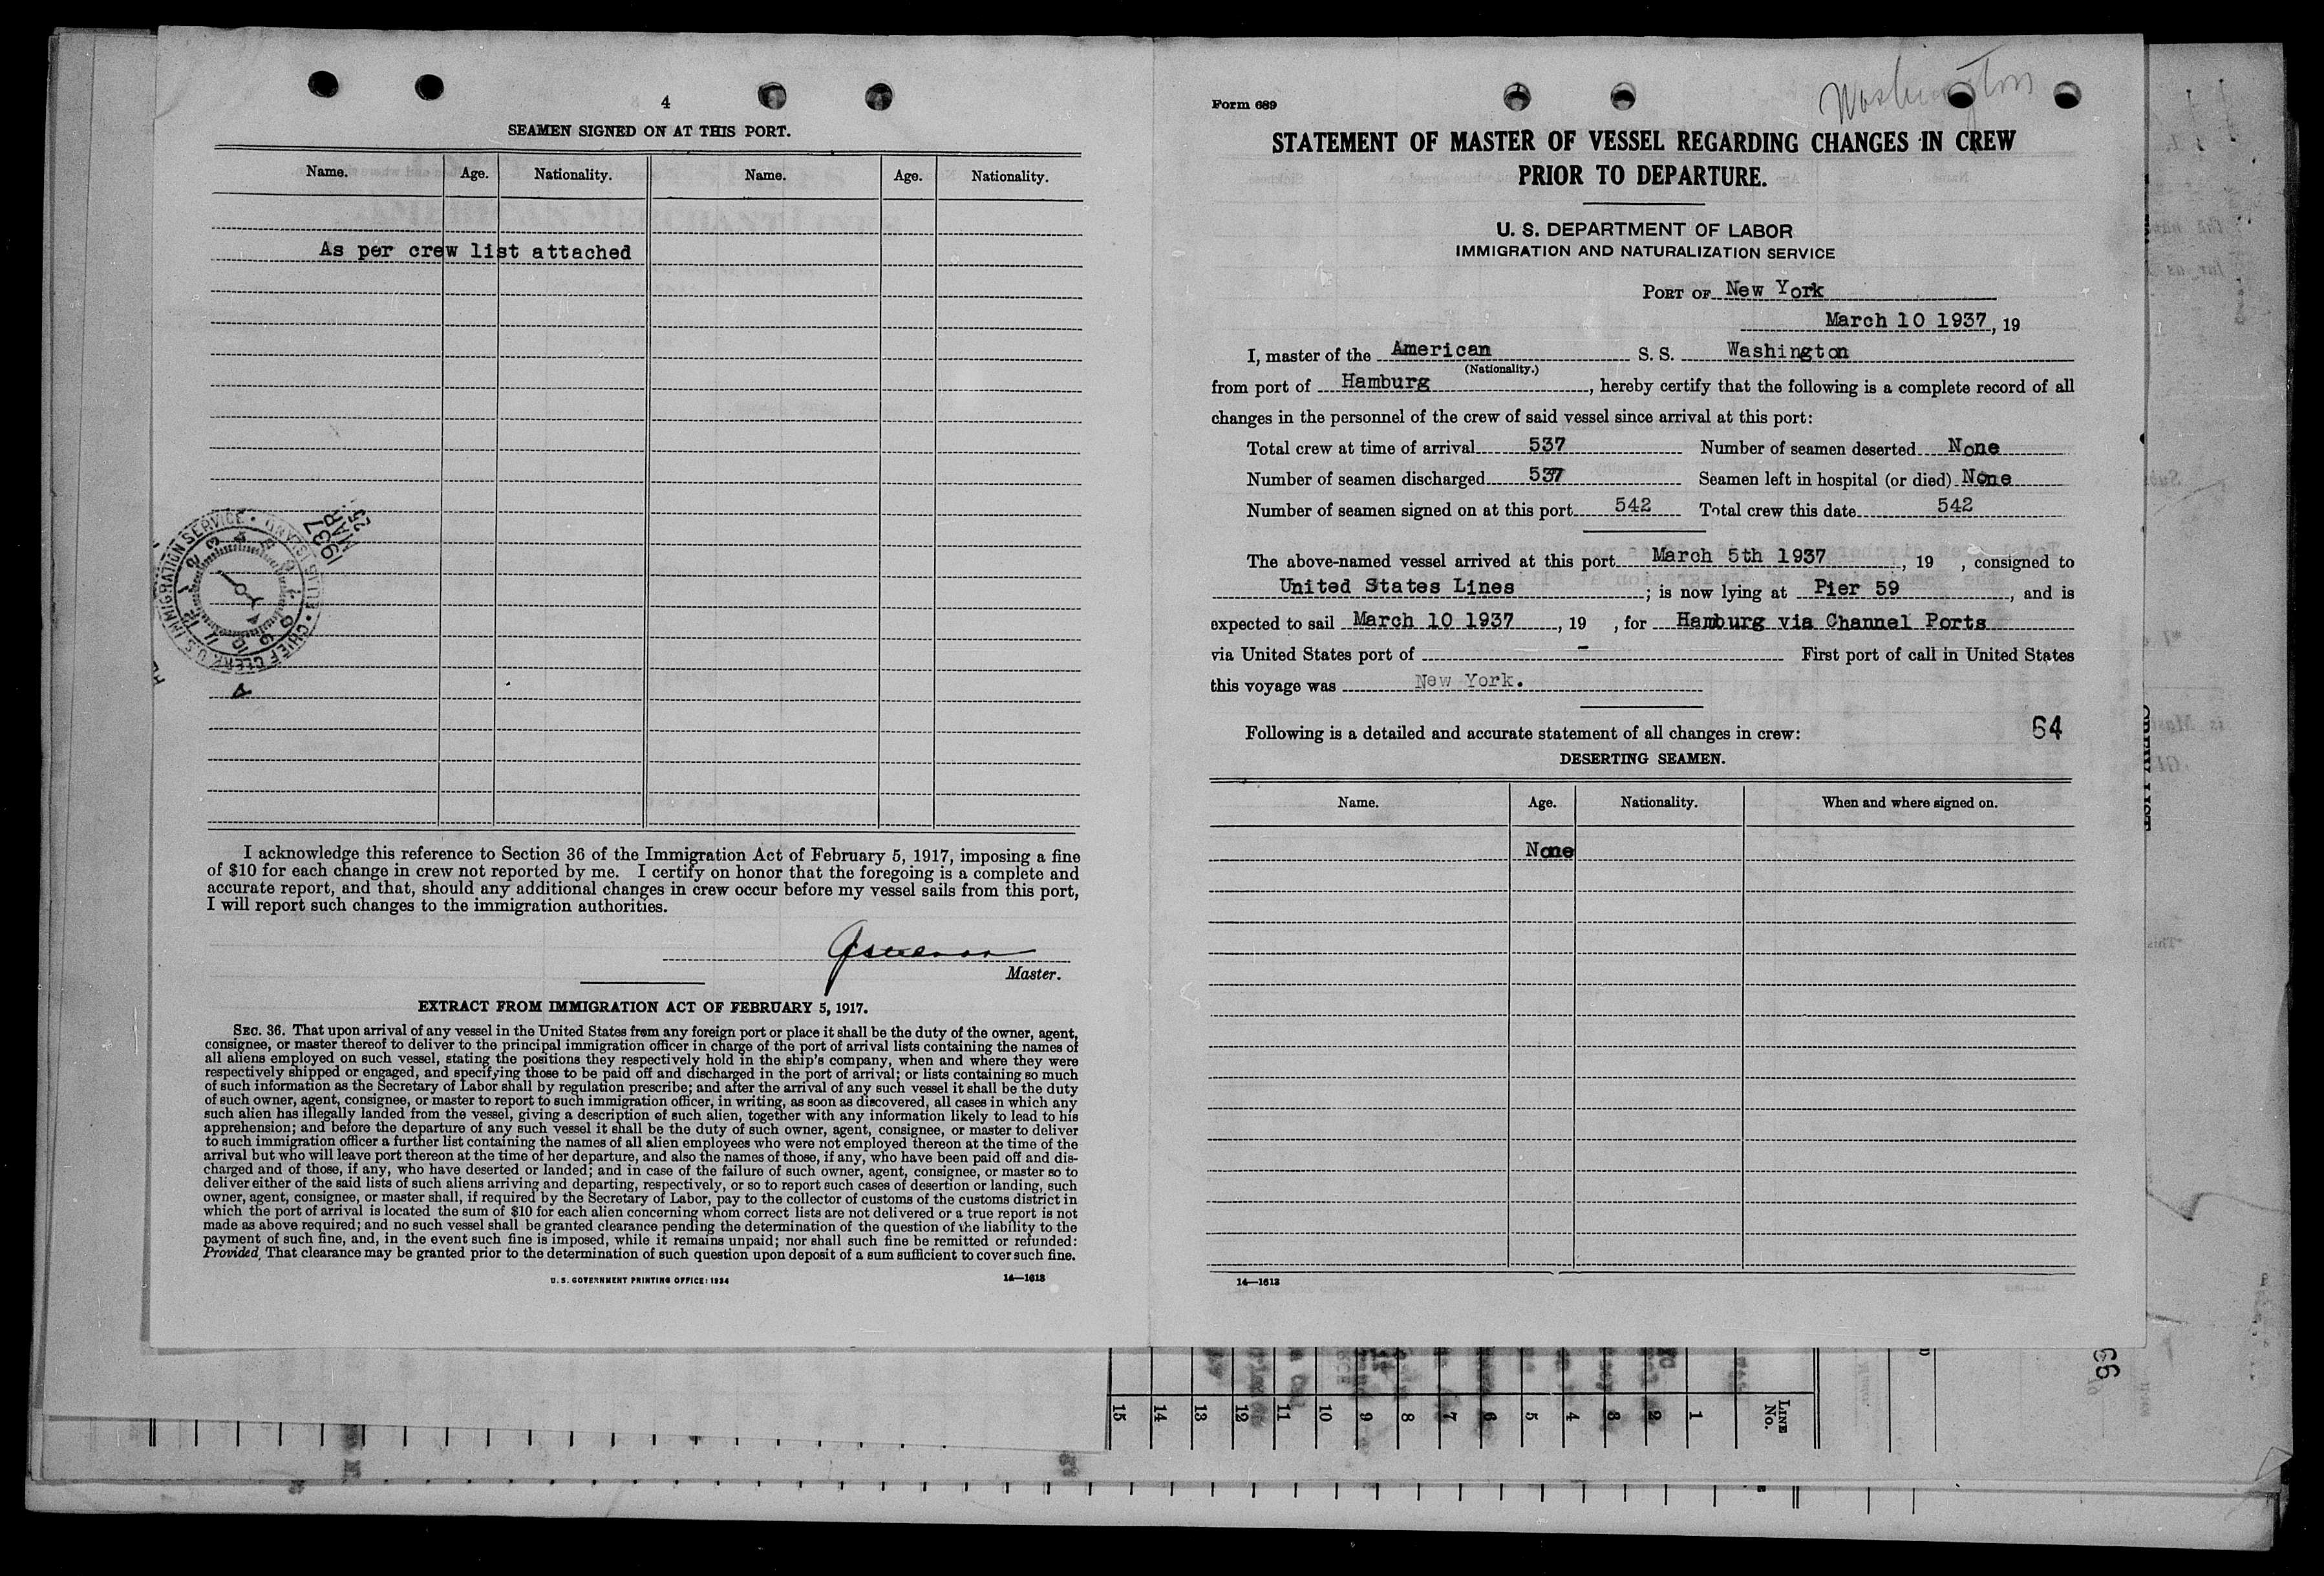 4
SEAMEN SIGNED ON AT THIS PORT.
Name. Age. Nationality. Name. Age. Nationality.
As per crew list attached
U.S. IMMIGRATION SERVICE
CHIEF CLERK
ELLIS ISLAND
1937
MAR
25
I acknowledge this reference to Section 36 of the Immigration Act of February 5, 1917, imposing a fine
of $10 for each change in crew not reported by me. I certify on honor that the foregoing is a complete and
accurate report, and that, should any additional changes in crew occur before my vessel sails from this port,
I will report such changes to the immigration authorities.
Master.
EXTRACT FROM IMMIGRATION ACT OF FEBRUARY 5, 1917.
SEC. 36. That upon arrival of any vessel in the United States from any foreign port or place it shall be the duty of the owner, agent,
consignee, or master thereof to deliver to the principal immigration officer in charge of the port of arrival lists containing the names of
all aliens employed on such vessel, stating the positions they respectively hold in the ship's company, when and where they were
respectively shipped or engaged, and specifying those to be paid off and discharged in the port of arrival; or lists containing so much
of such information as the Secretary of Labor shall by regulation prescribe; and after the arrival of any such vessel it shall be the duty
of such owner, agent, consignee, or master to report to such immigration officer, in writing, as soon as discovered, all cases in which any
such alien has illegally landed from the vessel, giving a description of such alien, together with any information likely to lead to his
apprehension; and before the departure of any such vessel it shall be the duty of such owner, agent, consignee, or master to deliver
to such immigration officer a further list containing the names of all alien employees who were not employed thereon at the time of the
arrival but who will leave port thereon at the time of her departure, and also the names of those, if any, who have been paid off and dis-
charged and of those, if any, who have deserted or landed; and in case of the failure of such owner, agent, consignee, or master so to
deliver either of the said lists of such aliens arriving and departing, respectively, or so to report such cases of desertion or landing, such
owner, agent, consignee, or master shall, if required by the Secretary of Labor, pay to the collector of customs of the customs district in
which the port of arrival is located the sum of $10 for each alien concerning whom correct lists are not delivered or a true report is not
made as above required; and no such vessel shall be granted clearance pending the determination of the question of the liability to the
payment of such fine, and, in the event such fine is imposed, while it remains unpaid; nor shall such fine be remitted or refunded:
Provided, That clearance may be granted prior to the determination of such question upon deposit of a sum sufficient to cover such fine.
U. S. GOVERNMENT PRINTING OFFICE: 1934 14—1613
Washington
Form 689
STATEMENT OF MASTER OF VESSEL REGARDING CHANGES IN CREW
PRIOR TO DEPARTURE.
U. S. DEPARTMENT OF LABOR
IMMIGRATION AND NATURALIZATION SERVICE
PORT OF New York
March 10 1937, 19
I, master of the American S. S. Washington
(Nationality.)
from port of Hamburg, hereby certify that the following is a complete record of all
changes in the personnel of the crew of said vessel since arrival at this port:
Total crew at time of arrival 537 Number of seamen deserted None
Number of seamen discharged 537 Seamen left in hospital (or died) None
Number of seamen signed on at this port 542 Total crew this date 542
The above-named vessel arrived at this port March 5th 1937, 19 , consigned to
United States Lines; is now lying at Pier 59, and is
expected to sail March 10 1937, 19 , for Hamburg via Channel Ports
via United States port of - First port of call in United States
this voyage was New York.
Following is a detailed and accurate statement of all changes in crew: 64
DESERTING SEAMEN.
Name. Age. Nationality. When and where signed on.
None
14—1613
66
15 14 13 12 11 10 9 8 7 6 5 4 3 2 1 LINE No.